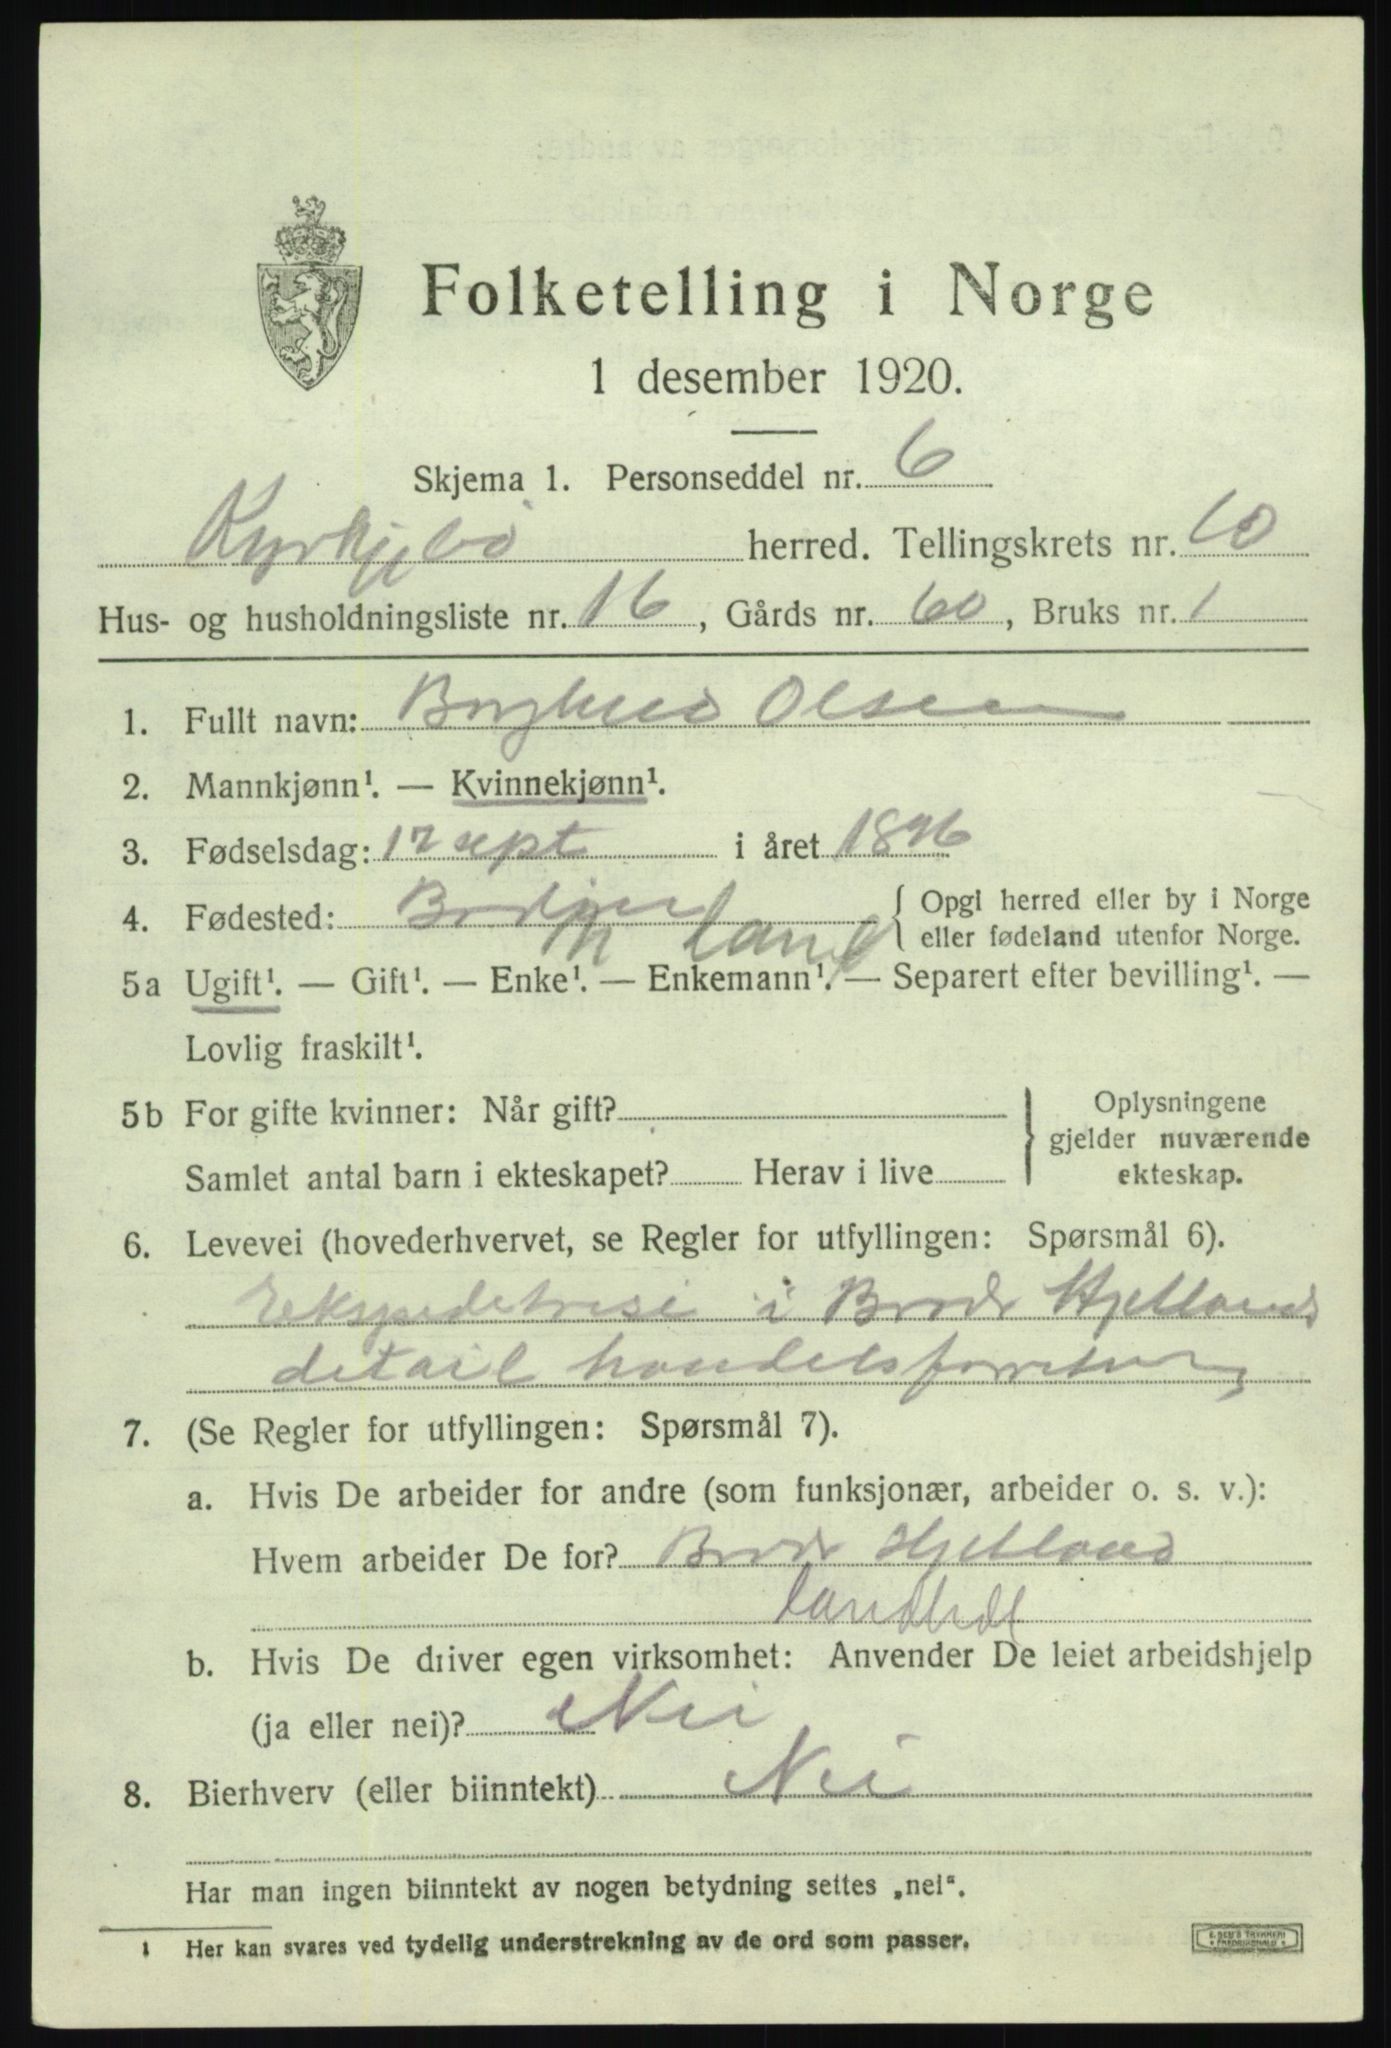 Folketelling i Norge
1 desember 1920.
Skjema 1. Personseddel nr. 6
Kyrkjebö herred. Tellingskrets nr. 10
Hus- og husholdningsliste nr. 16, Gårds nr. 60, Bruks nr. 1
1. Fullt navn: Borghild Olsen
2. Mannkjønn¹. — Kvinnekjønn¹.
3. Fødselsdag: 17 sept i året 1896
4. Fødested: land { Opgi herred eller by i Norge
eller fødeland utenfor Norge.
5a Ugift¹. — Gift¹. — Enke¹. — Enkemann¹. — Separert efter bevilling¹. —
Lovlig fraskilt¹.
5b For gifte kvinner: Når gift? } Oplysningene
gjelder nuværende
Samlet antal barn i ekteskapet? Herav i live ekteskap.
6. Levevei (hovederhvervet, se Regler for utfyllingen: Spørsmål 6).
Ekspedetrise i Brödr Hjelland
detail handelsforretning
7. (Se Regler for utfyllingen: Spørsmål 7).
a. Hvis De arbeider for andre (som funksjonær, arbeider o. s. v.):
Hvem arbeider De for? Brödr Hjelland
landhdl
b. Hvis De driver egen virksomhet: Anvender De leiet arbeidshjelp
(ja eller nei)? Nei
8. Bierhverv (eller biinntekt) Nei
Har man ingen biinntekt av nogen betydning settes „nei“.
1 Her kan svares ved tydelig understrekning av de ord som passer.